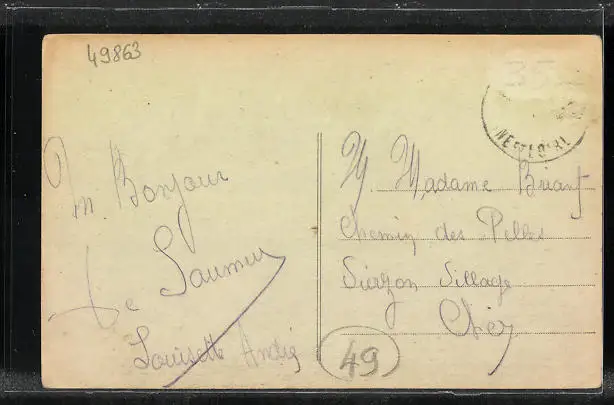 49863
35
NE-ET-LOIRE
Un Bonjour
de Saumur
Louisette André
M. Madame Briant
Chemin des Pelles
Vierzon Village
Cher
49